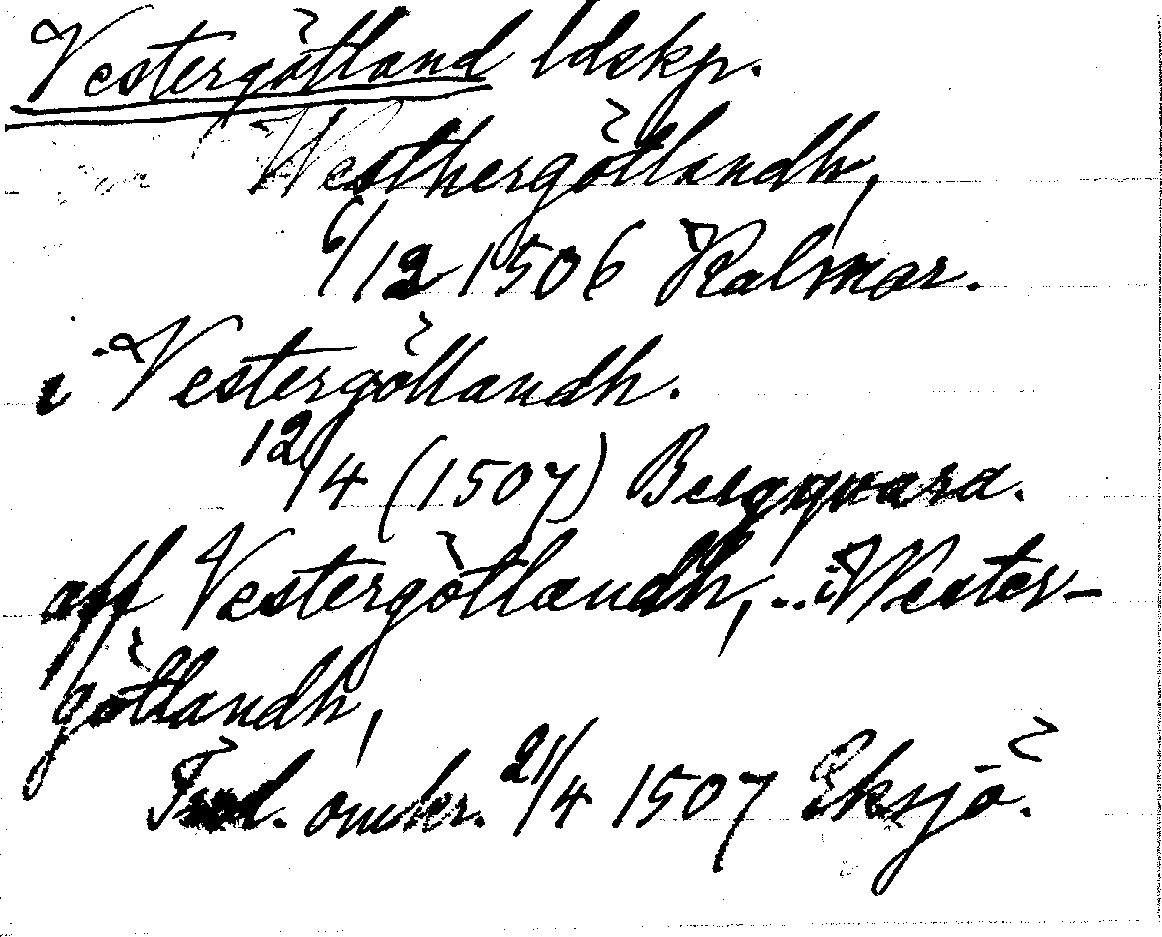 Vestergötland ldskp.
Westhergötlandh,
6/12 1506 Kalmar.
i Vestergötlandh.
12/4 (1507) Bergqvara.
aff Vestergötlandh, .. i Wester-
götlandh,
omkr. 21/4 1507 Eksjö.